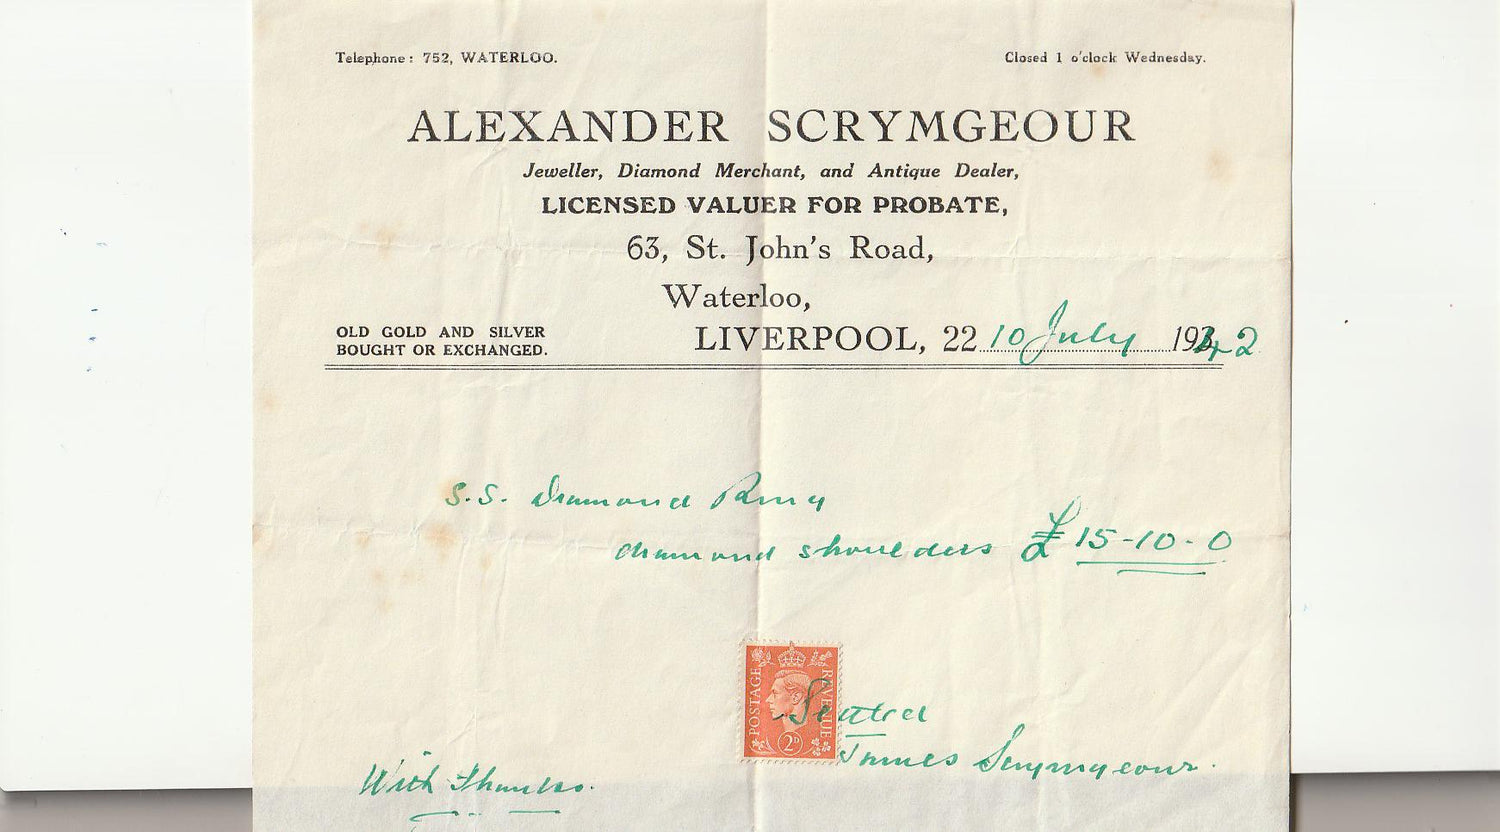 Telephone: 752, WATERLOO.
Closed 1 o'clock Wednesday.
ALEXANDER SCRYMGEOUR
Jeweller, Diamond Merchant, and Antique Dealer,
LICENSED VALUER FOR PROBATE,
63, St. John's Road,
Waterloo,
OLD GOLD AND SILVER
BOUGHT OR EXCHANGED.
LIVERPOOL, 22 10 July 1942
S.S. Diamond Ring
diamond shoulders £15-10-0
POSTAGE REVENUE
2D
Settled
James Scrymgeour.
With Thanks.